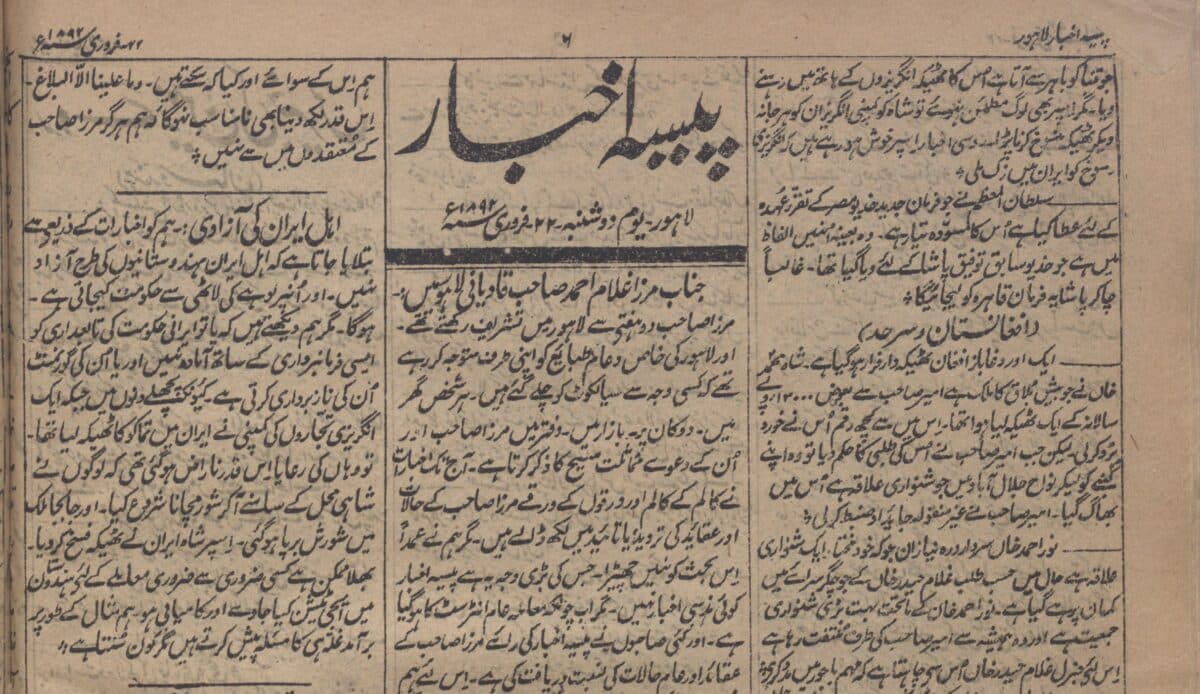 پیسہ اخبار لاہور
۶
۲۲۔ فروری سنہ ۱۸۹۲ء
جو تنباکو باہر سے آتا ہے اُس کا ٹھیکہ انگریزوں کے ہاتھ میں رہنے
دیا۔ مگر اسپر بھی لوگ مطمئن نہوئے تو شاہ کو کمپنی انگریزان کو ہرجانہ
دیکر ٹھیکہ منسوخ کرنا پڑا۔ روسی اخبار اسپر خوش ہو رہے ہیں کہ انگریزی
رسوخ کو ایران میں زک ملی۔
سلطان المعظم نے جو فرمان جدید خدیو مصر کے تقرر عہدہ
کے لئے عطا کیا ہے اُس کا مسودہ تیار ہے۔ وہ بعینہٖ اُنہیں الفاظ
میں ہے جو خدیو سابق توفیق پاشا کے لئے دیا گیا تھا۔ غالباً
چاکر پاشا یہ فرمان قاہرہ کو لیجائیگا۔
(افغانستان و سرحد)
ایک اور دغاباز افغان ٹھیکہ دار فرار ہوگیا ہے۔ شاہ محمد
خاں نے جو علاقہ کا ملک ہے امیر صاحب سے بعوض روپے
سالانہ کے ایک ٹھیکہ لیا ہوا تھا۔ اس میں سے کچھ رقم اُس نے خورد
بُرد کر لی۔ لیکن جب امیر صاحب نے اُس کی طلبی کا حکم دیا تو وہ اپنے
کنبے کو لیکر نواح جلال آباد میں جو شنواری علاقہ ہے اُس میں
بھاگ گیا۔ امیر صاحب نے غیر منقولہ جائداد ضبط کر لی۔
نور احمد خاں سردار درہ نیازیان جو کہ خود مختار ایک شنواری
علاقہ ہے حال میں حسب طلب غلام حیدر خاں کے سرائے میں
کمان پر ہے گیا ہے۔ نور احمد خان کے ماتحت بہت بڑی شنواری
جمعیت ہے اور وہ ہمیشہ سے امیر صاحب کی طرف ملتفت رہا ہے
اس لئے جنرل غلام حیدر خاں اُس سے چاہتا ہے کہ مہم باجور میں مدد کرے
پیسہ اخبار
لاہور۔ یوم دوشنبہ۔ ۲۲۔ فروری سنہ ۱۸۹۲ء
جناب مرزا غلام احمد صاحب قادیانی لاہور میں:۔
مرزا صاحب دو ہفتے سے لاہور میں تشریف رکھتے تھے۔
اور لاہور کی خاص و عام طبایع کو اپنی طرف متوجہ کر رہے
تھے کہ کسی وجہ سے سیالکوٹ کو چلے گئے ہیں۔ ہر شخص گھر
میں۔ دوکان پر۔ بازار میں۔ دفتر میں مرزا صاحب اور
اُن کے دعوے مماثلت مسیح کا ذکر کرتا ہے۔ آج تک اخبارات
نے کالم کے کالم اور ورقوں کے ورقے مرزا صاحب کے حالات
اور عقائد کی تردید یا تائید میں لکھ ڈالے ہیں۔ مگر ہم نے عمداً
اس بحث کو نہیں چھیڑا۔ جس کی بڑی وجہ یہ ہے پیسہ اخبار
کوئی مذہبی اخبار نہیں۔ مگر اب چونکہ معاملہ عام انٹرسٹ کا ہو گیا
ہے۔ اور کئی صاحبوں نے پیسہ اخبار کی رائے مرزا صاحب کے
عقائد اور عام حالات کی نسبت دریافت کی ہے۔ اس لئے ہم
ہم اس کے سوائے اور کیا کہہ سکتے ہیں۔ وما علینا الا البلاغ۔
اس قدر لکھ دینا بھی نامناسب نہوگا کہ ہم ہرگز مرزا صاحب
کے مُعتقدوں میں سے نہیں۔
اہل ایران کی آزادی:۔ ہم کو اخبارات کے ذریعہ سے
بتلایا جاتا ہے کہ اہل ایران ہندوستانیوں کی طرح آزاد
نہیں۔ اور اُنپر لوہے کی لاٹھی سے حکومت کیجاتی ہے۔
ہوگا۔ مگر ہم دیکھتے ہیں کہ یا تو ایرانی حکومت کی تابعداری کو
ایسی فرمانبرداری کے ساتھ آمادہ نہیں اور یا اُن کی گورنمنٹ
اُن کی ناز برداری کرتی ہے۔ کیونکہ پچھلے دنوں میں جبکہ ایک
انگریزی تجاروں کی کمپنی نے ایران میں تماکو کا ٹھیکہ لیا تھا۔
تو وہاں کی رعایا اس قدر ناراض ہوگئی تھی کہ لوگوں نے
شاہی محل کے سامنے آکر شور مچانا شروع کیا۔ اور جابجا ملک
میں شورش برپا ہوگئی۔ اسپر شاہ ایران نے ٹھیکہ فسخ کر دیا۔
بھلا ممکن ہے کسی ضروری سے ضروری معاملے کے لئے ہندوستان
میں ایجی ٹیشن کیا جاوے اور کامیابی ہو۔ ہم مثال کے طور پر
برآمد غلہ ہی کا مسئلہ پیش کرتے ہیں مگر کون سُنتا ہے۔